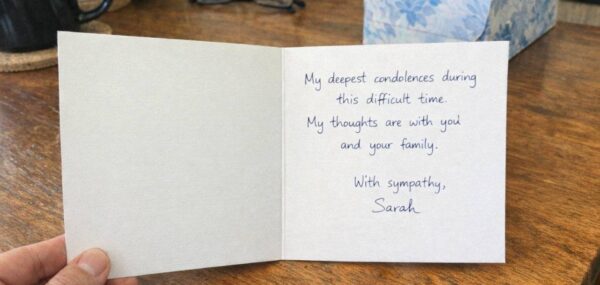 My deepest condolences during
this difficult time.
My thoughts are with you
and your family.
With sympathy,
Sarah